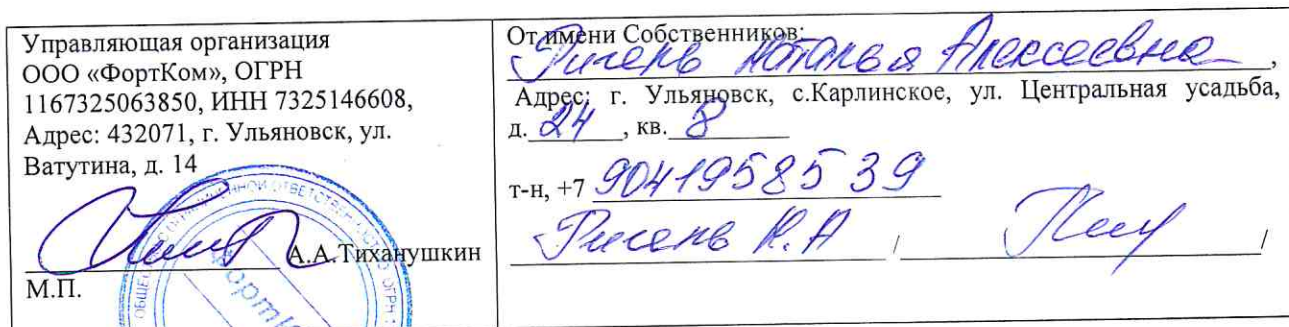 Управляющая организация
ООО «ФортКом», ОГРН
1167325063850, ИНН 7325146608,
Адрес: 432071, г. Ульяновск, ул.
Ватутина, д. 14
А.А.Тиханушкин
М.П.
От имени Собственников:
Наталья Алексеевна,
Адрес: г. Ульяновск, с.Карлинское, ул. Центральная усадьба,
д. 24, кв. 8
т-н, +7 9041958539
/ /